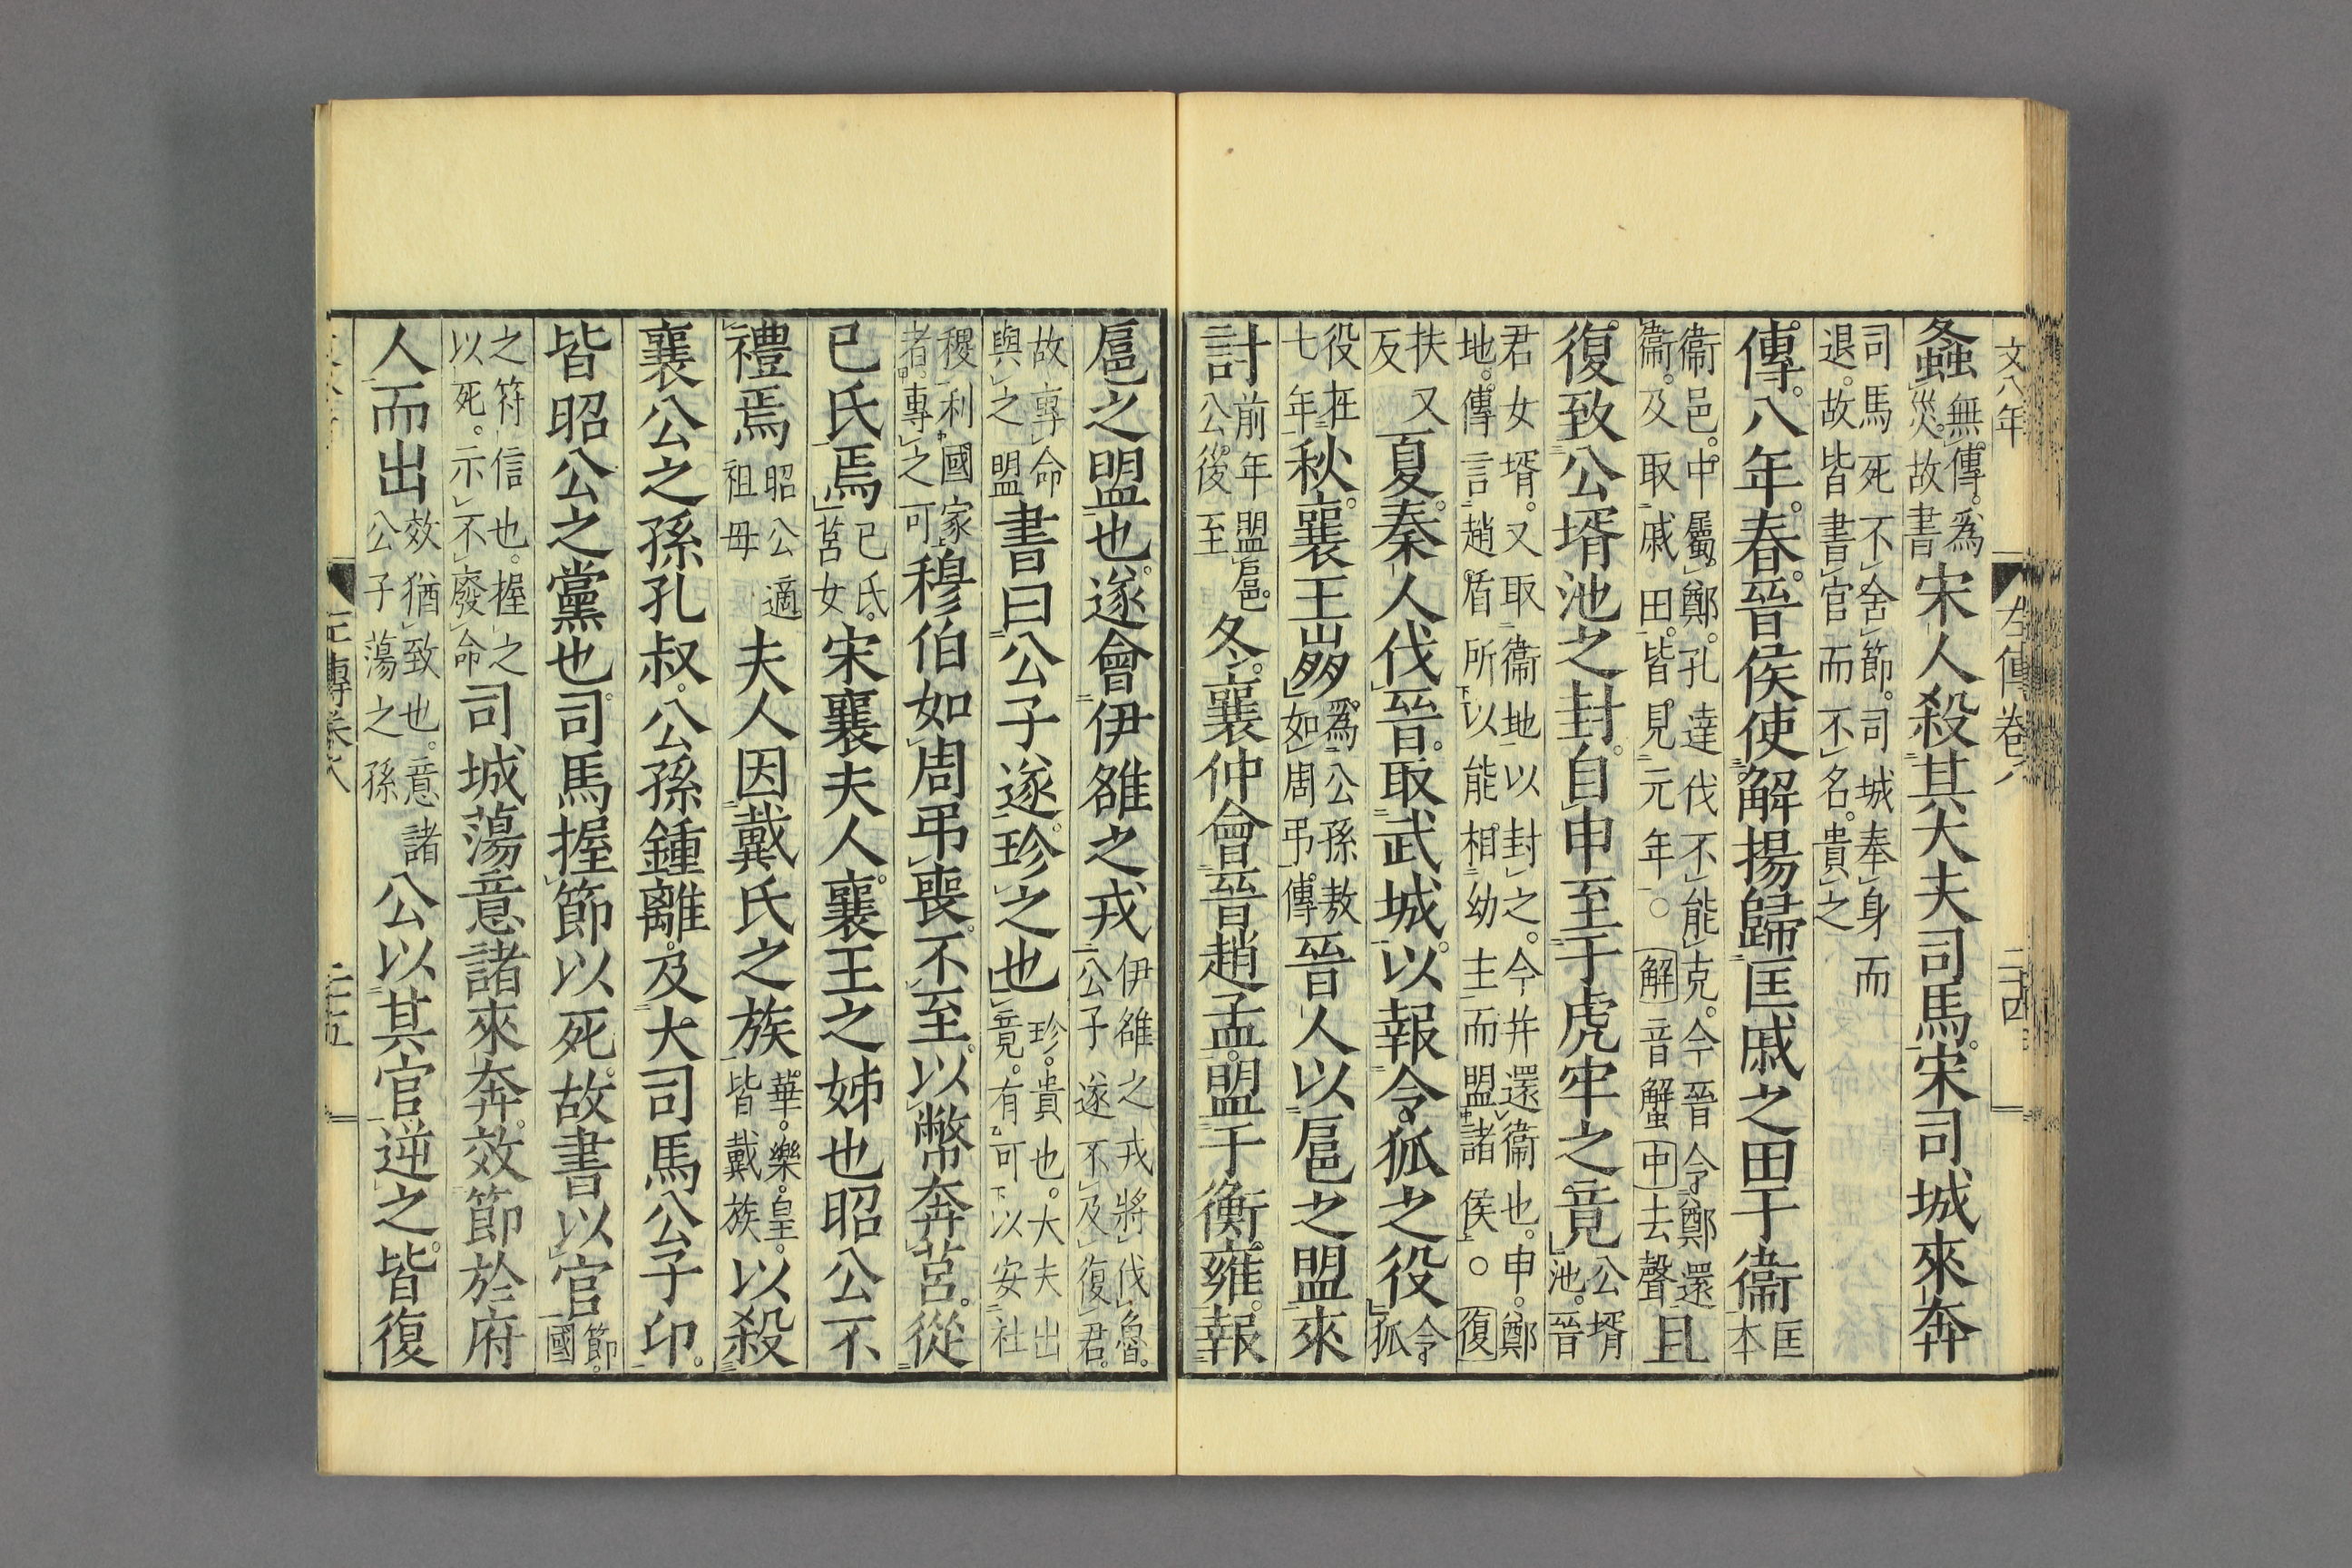 文八年
左傳卷八
二十四
螽無傳爲災故書宋人殺其大夫司馬宋司城來奔
司馬死不舍節司城奉身而退故皆書官而不名貴之
傳八年春晉侯使解揚歸匡戚之田于衞匡本
衞邑中屬鄭孔達伐不能克今晉令鄭還衞及取戚田皆見元年○解音蟹中去聲且
復致公壻池之封自申至于虎牢之竟公壻池晉
君女壻又取衞地以封之今幷還衞也申鄭地傳言趙盾所以能相幼主而盟諸侯○復
扶又反夏秦人伐晉取武城以報令狐之役令狐
役在七年秋襄王崩爲公孫敖如周弔傳晉人以扈之盟來
討前年盟扈公後至冬襄仲會晉趙孟盟于衡雍報
扈之盟也遂會伊雒之戎伊雒之戎將伐魯公子遂不及復君
故專命與之盟書曰公子遂珍之也珍貴也大夫出竟有可以安社
稷利國家者專之可穆伯如周弔喪不至以幣奔莒從
己氏焉己氏莒女宋襄夫人襄王之姊也昭公不
禮焉昭公適祖母夫人因戴氏之族華樂皇皆戴族以殺
襄公之孫孔叔公孫鍾離及大司馬公子卬
皆昭公之黨也司馬握節以死故書以官節國
之符信也握之以死示不廢命司城蕩意諸來奔效節於府
人而出效猶致也意諸公子蕩之孫公以其官逆之皆復
左傳卷八
二十五